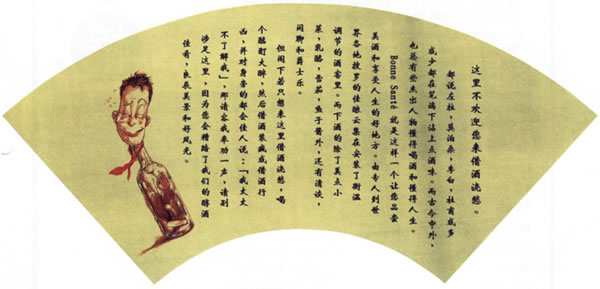 这里不欢迎您来借酒浇愁。
都说左拉,莫泊桑,李白,杜甫或多
或少都在笔端下沾上点酒味。而古今中外,
也总有些杰出人物懂得喝酒和懂得人生。
Bonne Santé 就是这样一个让您品尝
美酒和享受人生的好地方。由专人到世
界各地搜罗的佳酿云集在安装了衡温
调节的酒窖里。而下酒的除了美点小
菜,乳酪,雪茄,鱼子酱外,还有清谈,
闲聊和爵士乐。
但阁下若只想来这里借酒浇愁,喝
个酩酊大醉,然后借酒装疯或借酒行
凶,并对身旁的都会佳人说:「我太太
不了解我」,那请容我奉劝一声,请别
涉足这里,因为您会糟踏了我们的醇酒
佳肴,良辰美景和好风光。